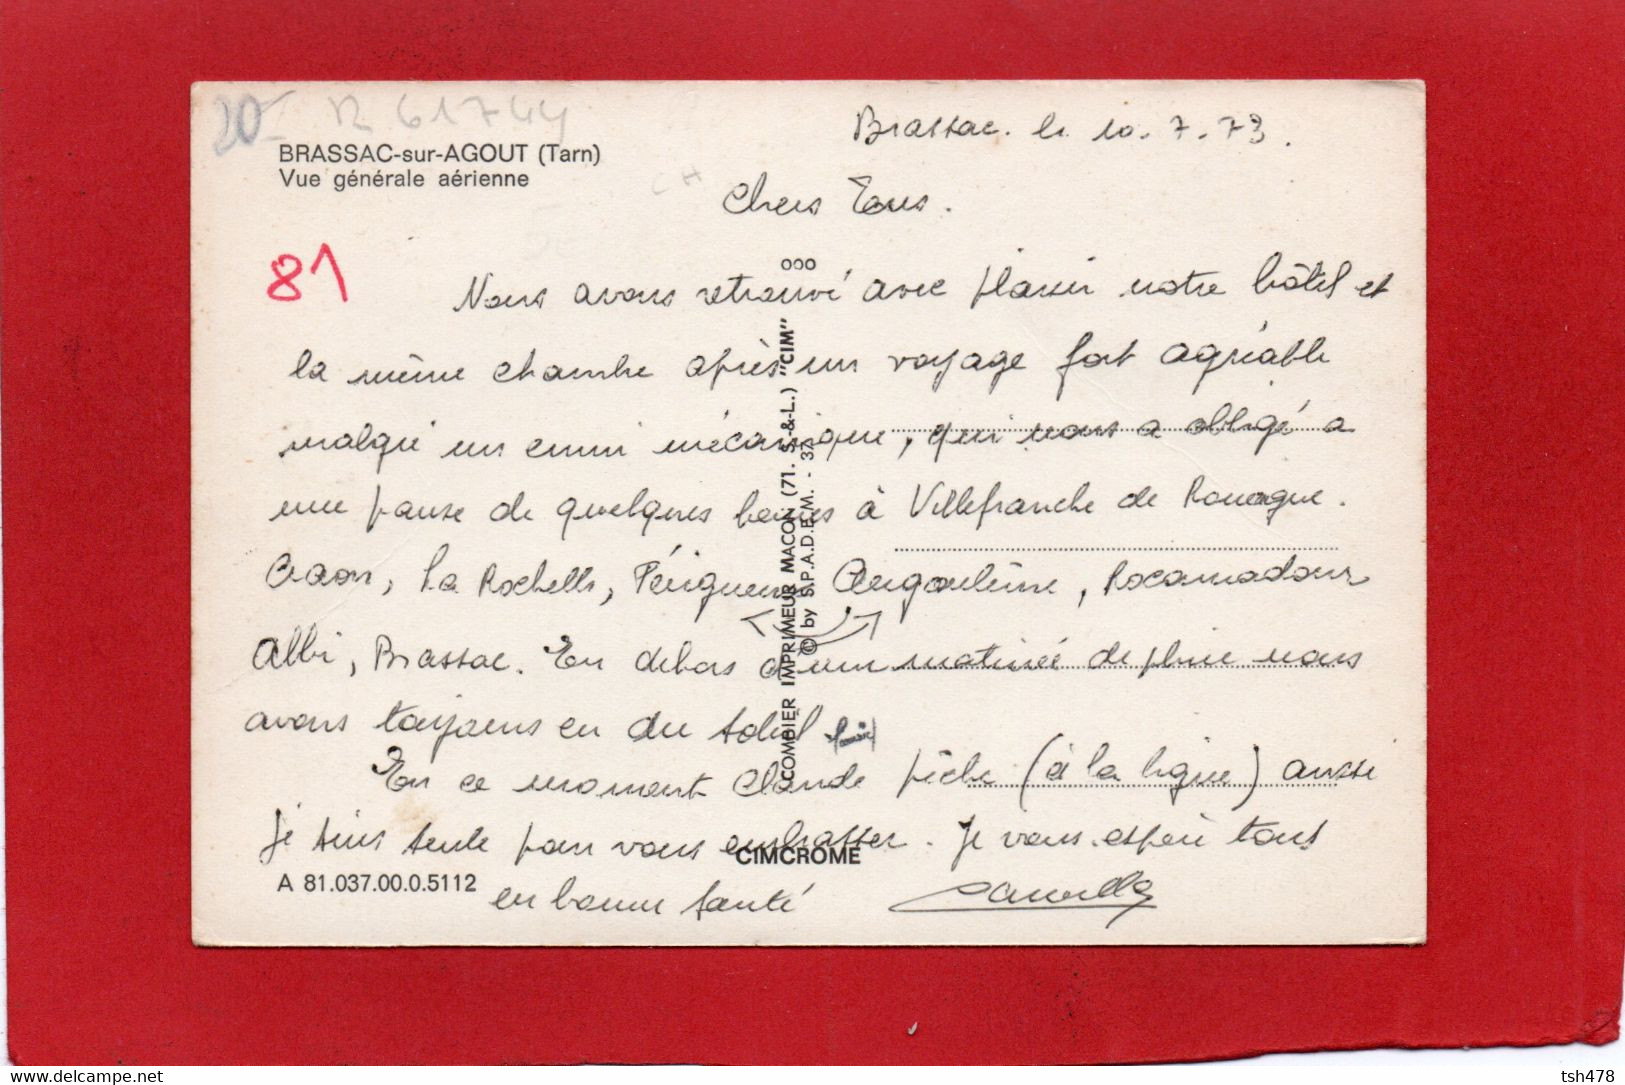 20 R 61744
BRASSAC-sur-AGOUT (Tarn)
Vue générale aérienne
81
Brassac. le 10.7.73.
Chers Tous.
Nous avons retrouvé avec plaisir notre hôtel et
la même chambre après un voyage fort agréable
malgré un ennui mécanique, qui nous a obligé a
une pause de quelques heures à Villefranche de Rouergue.
Craon, La Rochelle, Périgueux Angoulême, Rocamadour
Albi, Brassac. En dehors d'une matinée de pluie nous
avons toujours eu du soleil
En ce moment Claude pêche (à la ligne) aussi
je suis seule pour vous embrasser. Je vous espère tous
en bonne santé
ooo
COMBIER IMPRIMEUR MACON (71. S.-&-L.) "CIM"
© by S.P.A.D.E.M. - 37
CIMCROME
A 81.037.00.0.5112
www.delcampe.net
tsh478